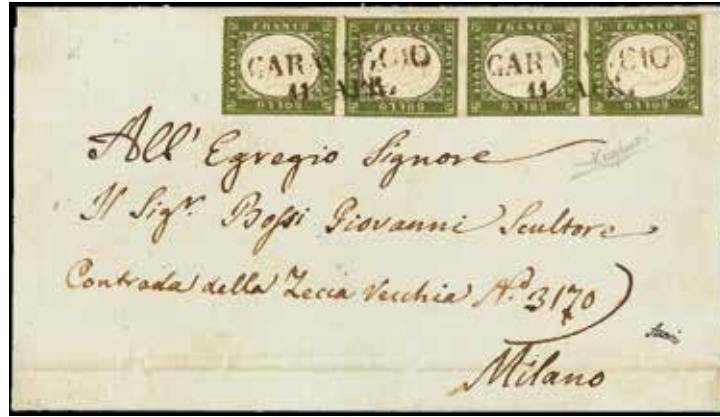 FRANCO FRANCO FRANCO FRANCO
BOLLO BOLLO BOLLO BOLLO
CARAVAGGIO CARAVAGGIO
11 APR. 11 APR.
All' Egregio Signore
Il Sigr. Bossi Giovanni Scultore
Contrada della Zecca Vecchia N.º 3170
Milano